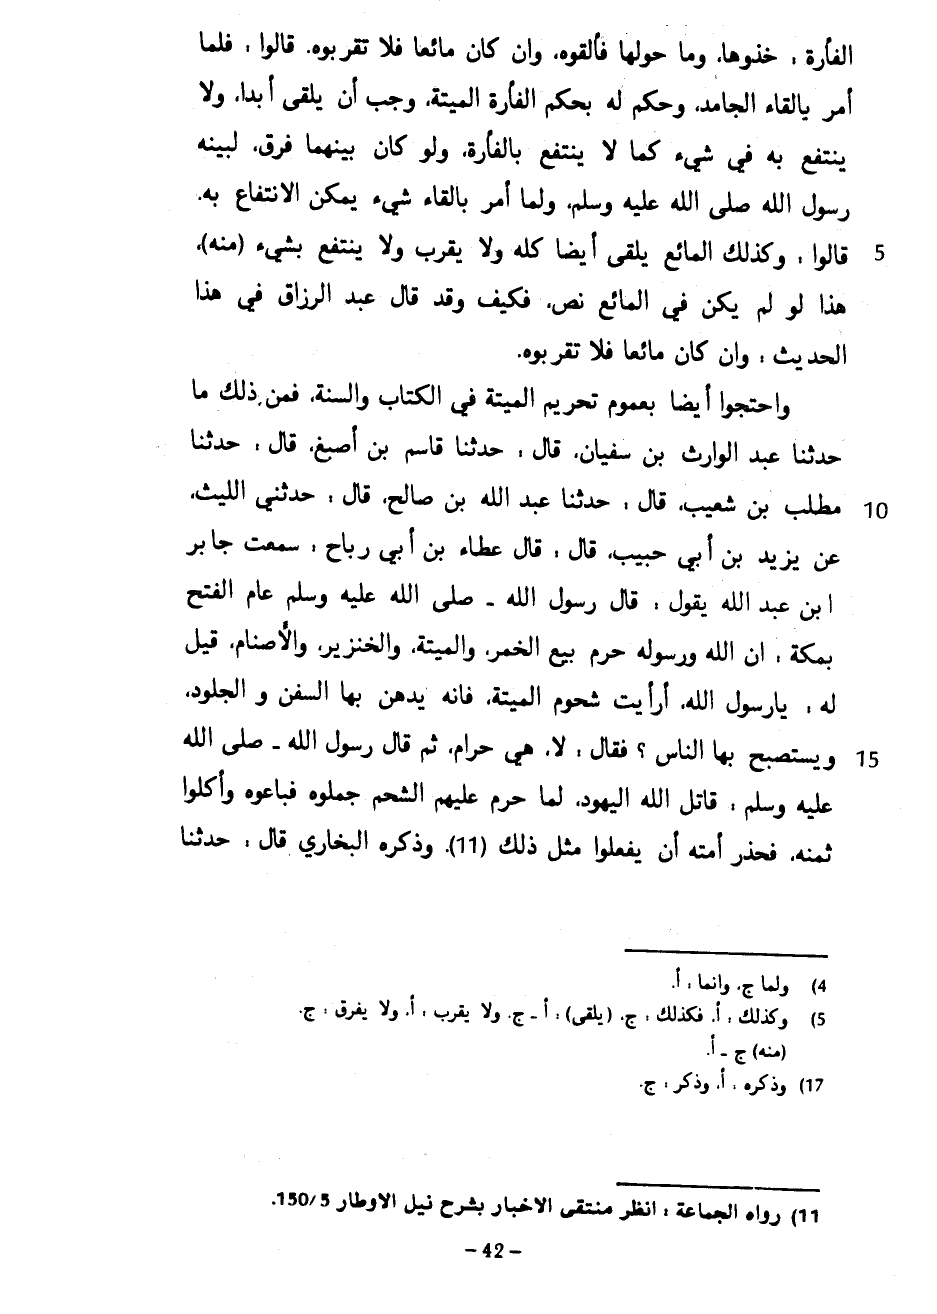 الفأرة : خذوها، وما حولها فألقوه، وان كان مائعا فلا تقربوه. قالوا : فلما
أمر بالقاء الجامد، وحكم له بحكم الفأرة الميتة، وجب أن يلقى أبدا، ولا
ينتفع به في شيء كما لا ينتفع بالفأرة، ولو كان بينهما فرق، لبينه
رسول الله صلى الله عليه وسلم، ولما أمر بالقاء شيء يمكن الانتفاع به.
5 قالوا : وكذلك المائع يلقى أيضا كله ولا يقرب ولا ينتفع بشيء (منه)،
هذا لو لم يكن في المائع نص، فكيف وقد قال عبد الرزاق في هذا
الحديث : وان كان مائعا فلا تقربوه.
واحتجوا أيضا بعموم تحريم الميتة في الكتاب والسنة، فمن ذلك ما
حدثنا عبد الوارث بن سفيان، قال : حدثنا قاسم بن أصبغ، قال : حدثنا
10 مطلب بن شعيب، قال : حدثنا عبد الله بن صالح، قال : حدثني الليث،
عن يزيد بن أبي حبيب، قال : قال عطاء بن أبي رباح : سمعت جابر
ابن عبد الله يقول : قال رسول الله ـ صلى الله عليه وسلم عام الفتح
بمكة : ان الله ورسوله حرم بيع الخمر، والميتة، والخنزير، والأصنام، قيل
له : يارسول الله، أرأيت شحوم الميتة، فانه يدهن بها السفن و الجلود،
15 ويستصبح بها الناس ؟ فقال : لا، هي حرام، ثم قال رسول الله ـ صلى الله
عليه وسلم : قاتل الله اليهود، لما حرم عليهم الشحم جملوه فباعوه وأكلوا
ثمنه، فحذر أمته أن يفعلوا مثل ذلك (11). وذكره البخاري قال : حدثنا
4) ولما ج، وانما : أ.
5) وكذلك : أ، فكذلك : ج. (يلقى) : أ ـ ج. ولا يقرب : أ، ولا يفرق : ج.
(منه) ج ـ أ.
17) وذكره : أ، وذكر : ج.
11) رواه الجماعة : انظر منتقى الاخبار بشرح نيل الاوطار 5/150.
– 42 –